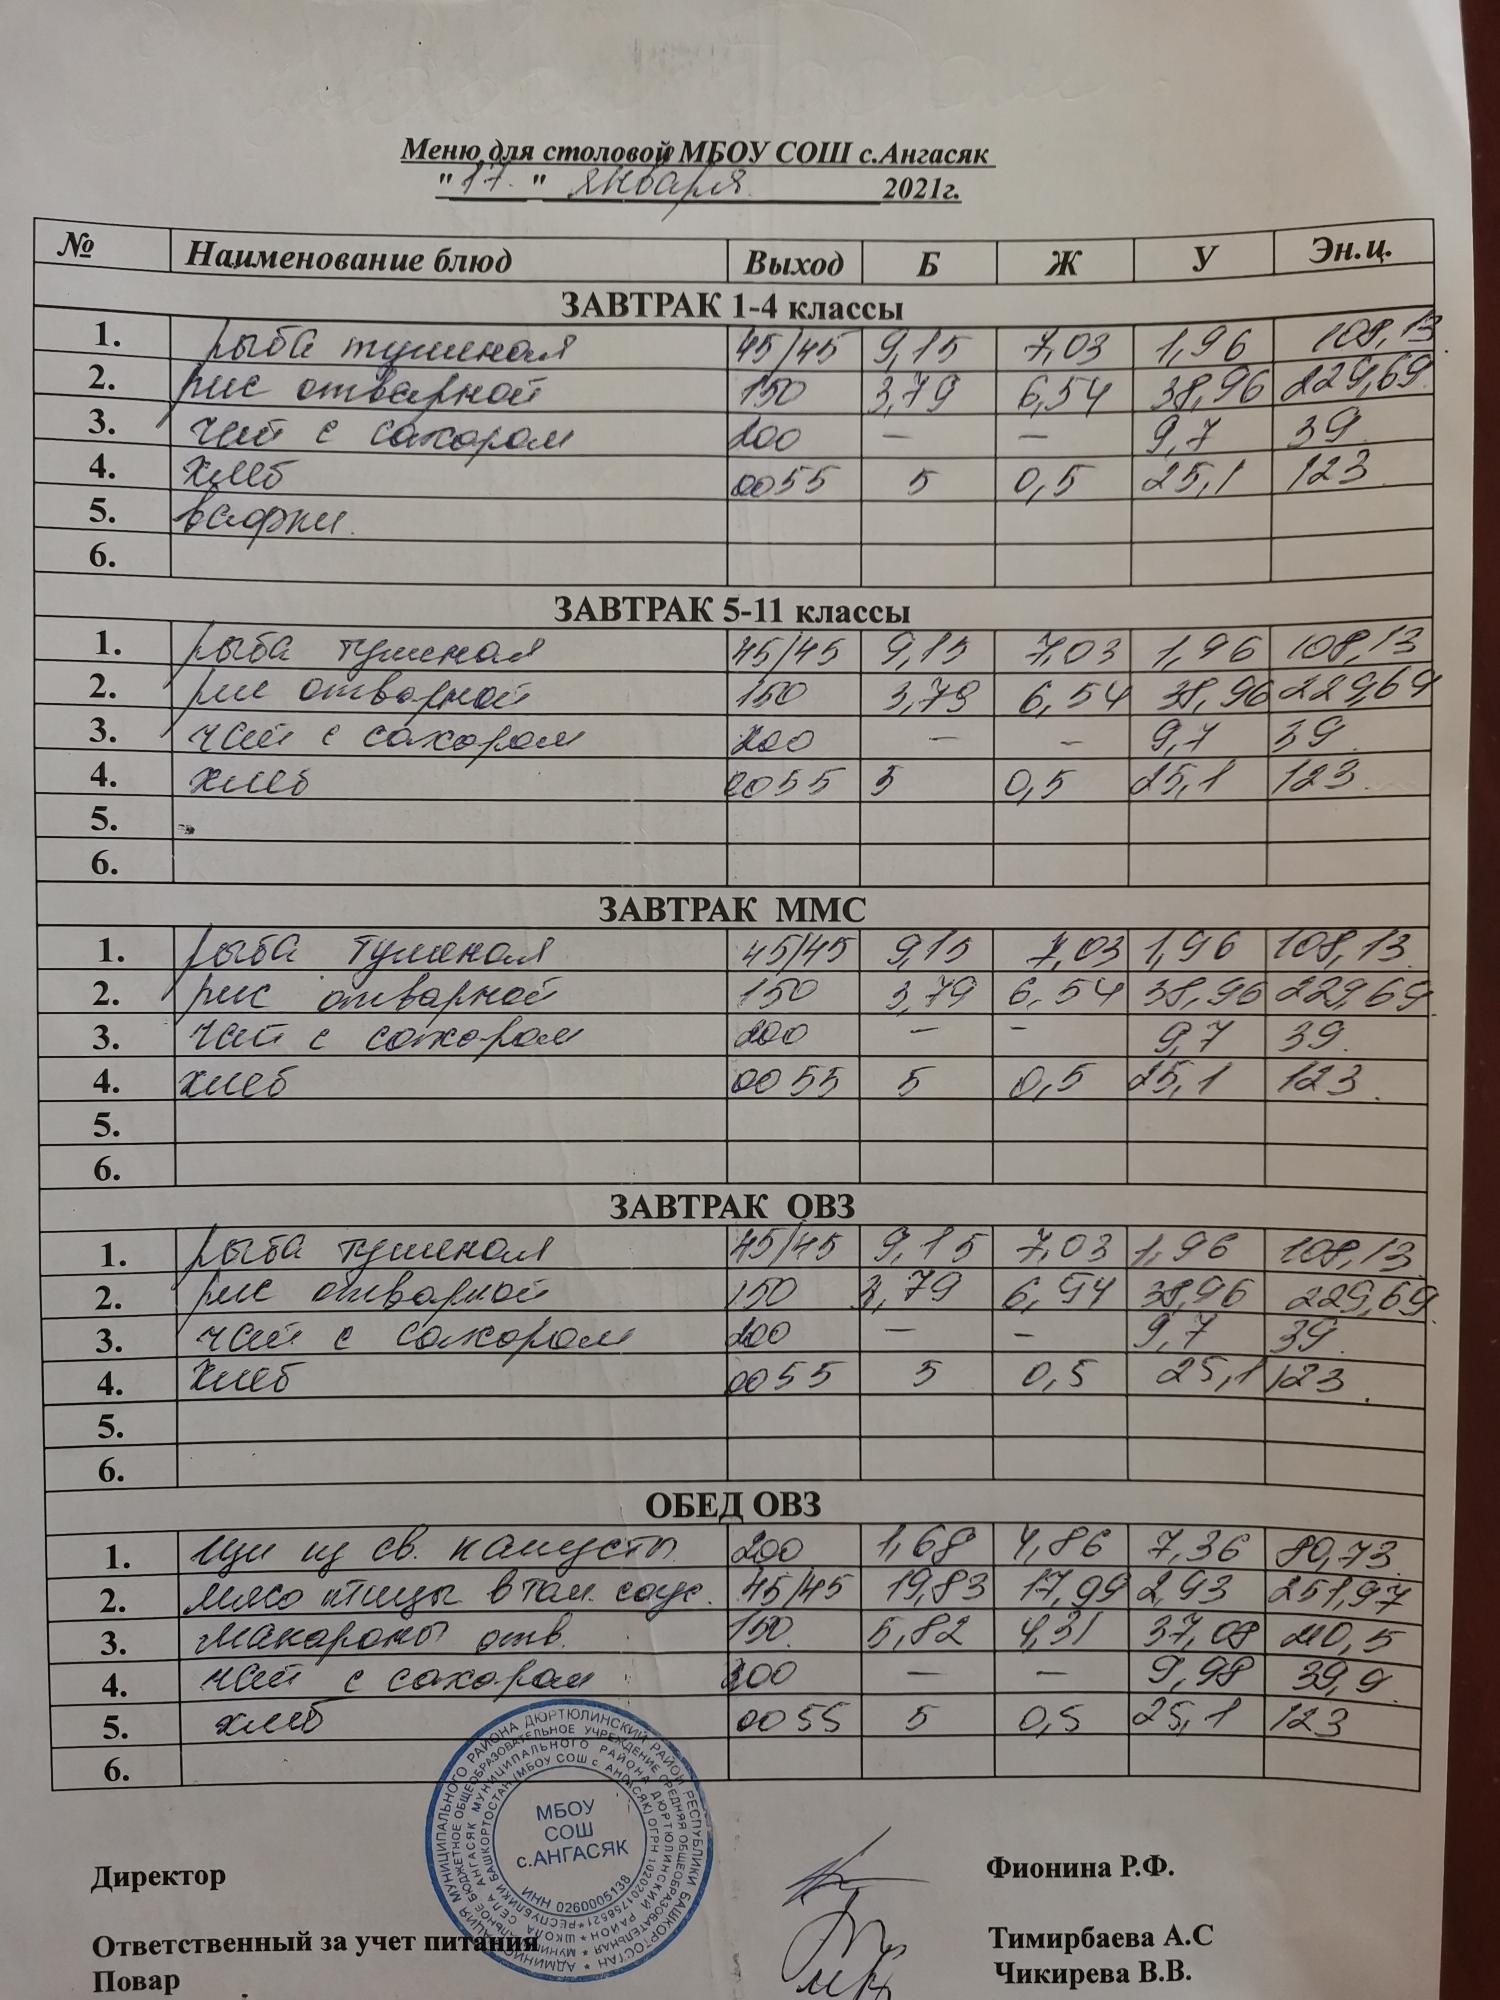 Меню для столовой МБОУ СОШ с.Ангасяк
"17." января 2021г.
№ Наименование блюд Выход Б Ж У Эн.ц.
ЗАВТРАК 1-4 классы
1. рыба тушеная 45/45 9,15 7,03 1,96 108,13
2. рис отварной 150 3,79 6,54 38,96 229,69
3. чай с сахором 200 — — 9,7 39
4. хлеб 0055 5 0,5 25,1 123
5. вафли.
6.
ЗАВТРАК 5-11 классы
1. рыба тушеная 45/45 9,15 7,03 1,96 108,13
2. рис отварной 150 3,79 6,54 38,96 229,69
3. чай с сахором 200 — — 9,7 39
4. хлеб 0055 5 0,5 25,1 123
5.
6.
ЗАВТРАК ММС
1. рыба тушеная 45/45 9,15 7,03 1,96 108,13
2. рис отварной 150 3,79 6,54 38,96 229,69
3. чай с сахором 200 — — 9,7 39
4. хлеб 0055 5 0,5 25,1 123
5.
6.
ЗАВТРАК ОВЗ
1. рыба тушеная 45/45 9,15 7,03 1,96 108,13
2. рис отварной 150 3,79 6,54 38,96 229,69
3. чай с сахором 200 — — 9,7 39
4. хлеб 0055 5 0,5 25,1 123
5.
6.
ОБЕД ОВЗ
1. щи из св. капусты 200 1,68 4,86 7,36 80,73
2. мясо птицы в том. соус. 45/45 19,83 17,99 2,93 251,97
3. макароны отв. 150 5,82 4,31 37,08 210,5
4. чай с сахором 200 — — 9,98 39,9
5. хлеб 0055 5 0,5 25,1 123
6.
МБОУ
СОШ
с.АНГАСЯК
ИНН 0260005138
Директор Фионина Р.Ф.
Ответственный за учет питания Тимирбаева А.С
Повар Чикирева В.В.